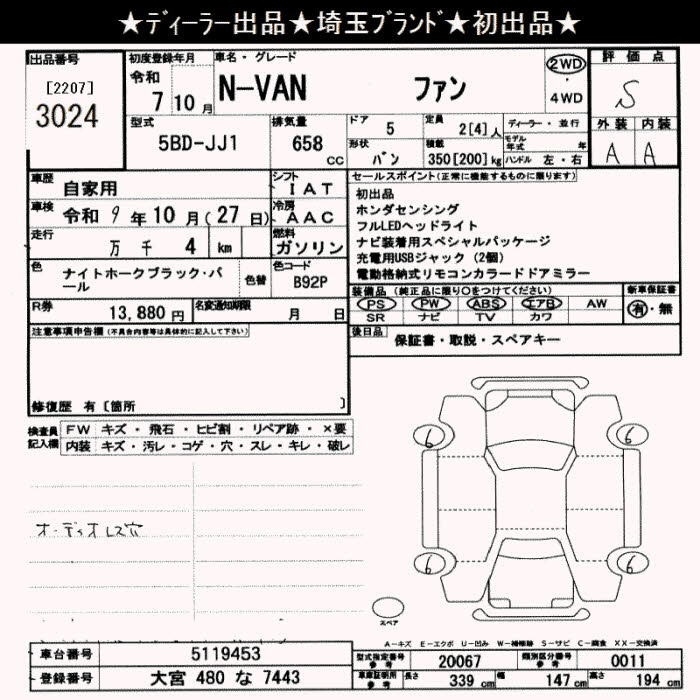 ★ディーラー出品★埼玉ブランド★初出品★
出品番号
[2207]
3024
初度登録年月
令和
7年10月
車名・グレード
N-VAN ファン
2WD
・
4WD
評価点
S
型式
5BD-JJ1
排気量
658
CC
ドア
5
定員
2[4]人
形状
バン
積載
350[200]kg
ディーラー・並行
モデル年式 年
ハンドル 左・右
外装 内装
A A
車歴
自家用
シフト
IAT
車検
令和 9年10月(27日)
冷房
AAC
走行
万 千 4 km
燃料
ガソリン
色
ナイトホークブラック・パール
色替
色コード
B92P
R券
13,880円
名変通知期限
月 日
セールスポイント(正常に機能するものに限り)
初出品
ホンダセンシング
フルLEDヘッドライト
ナビ装着用スペシャルパッケージ
充電用USBジャック(2個)
電動格納式リモコンカラードドアミラー
装備品(純正品に限り○をつけてください)
新車保証書
PS PW ABS エアB AW
有・無
SR ナビ TV カワ
後日品
保証書・取説・スペアキー
注意事項申告欄(不具合内容等は具体的に記入して下さい)
修復歴 有〔箇所 〕
検査員記入欄
FW キズ・飛石・ヒビ割・リペア跡・×要
内装 キズ・汚レ・コゲ・穴・スレ・キレ・破レ
オーディオレス穴
6
6
6
6
スペア
A-キズ E-エクボ U-凹み W-補修跡 S-サビ C-腐食 XX-交換済
車台番号
5119453
登録番号
大宮 480 な 7443
型式指定番号
参考
20067
類別区分番号
参考
0011
車庫証明用
参考
長さ
339 cm
幅
147 cm
高さ
194 cm